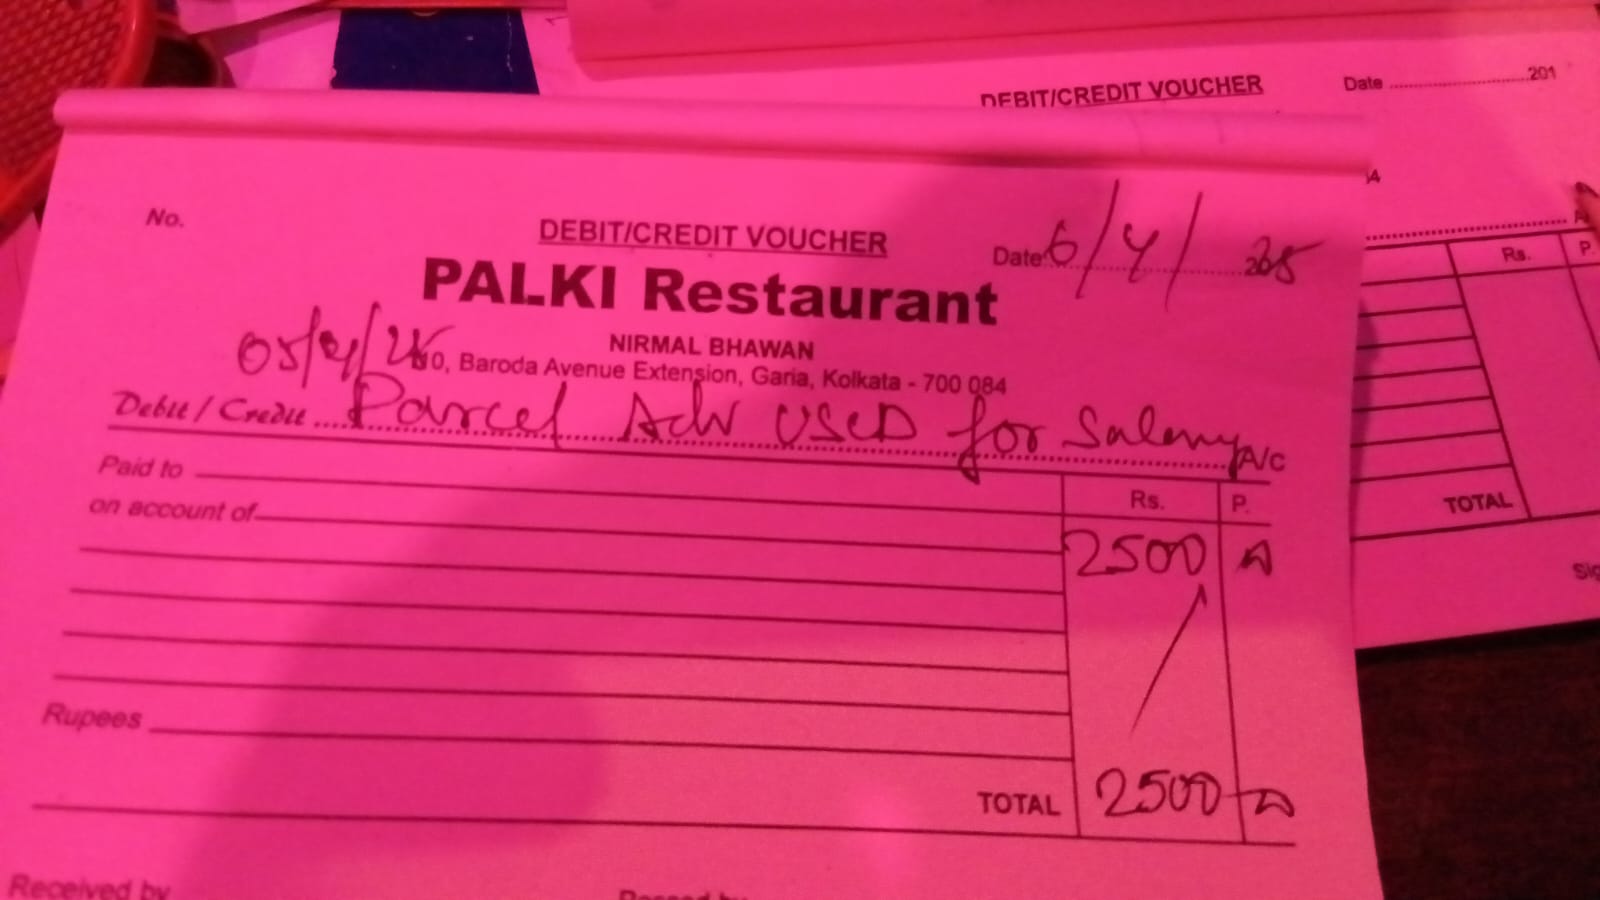 DEBIT/CREDIT VOUCHER
Date ........................201
No.
DEBIT/CREDIT VOUCHER
Date: 6/4/
PALKI Restaurant
NIRMAL BHAWAN
10, Baroda Avenue Extension, Garia, Kolkata - 700 084
Debit / Credit Parcel Adv USED for Salary A/c
Paid to
Rs. P.
on account of
2500
Rupees
TOTAL 2500
Received by
Rs. P.
TOTAL